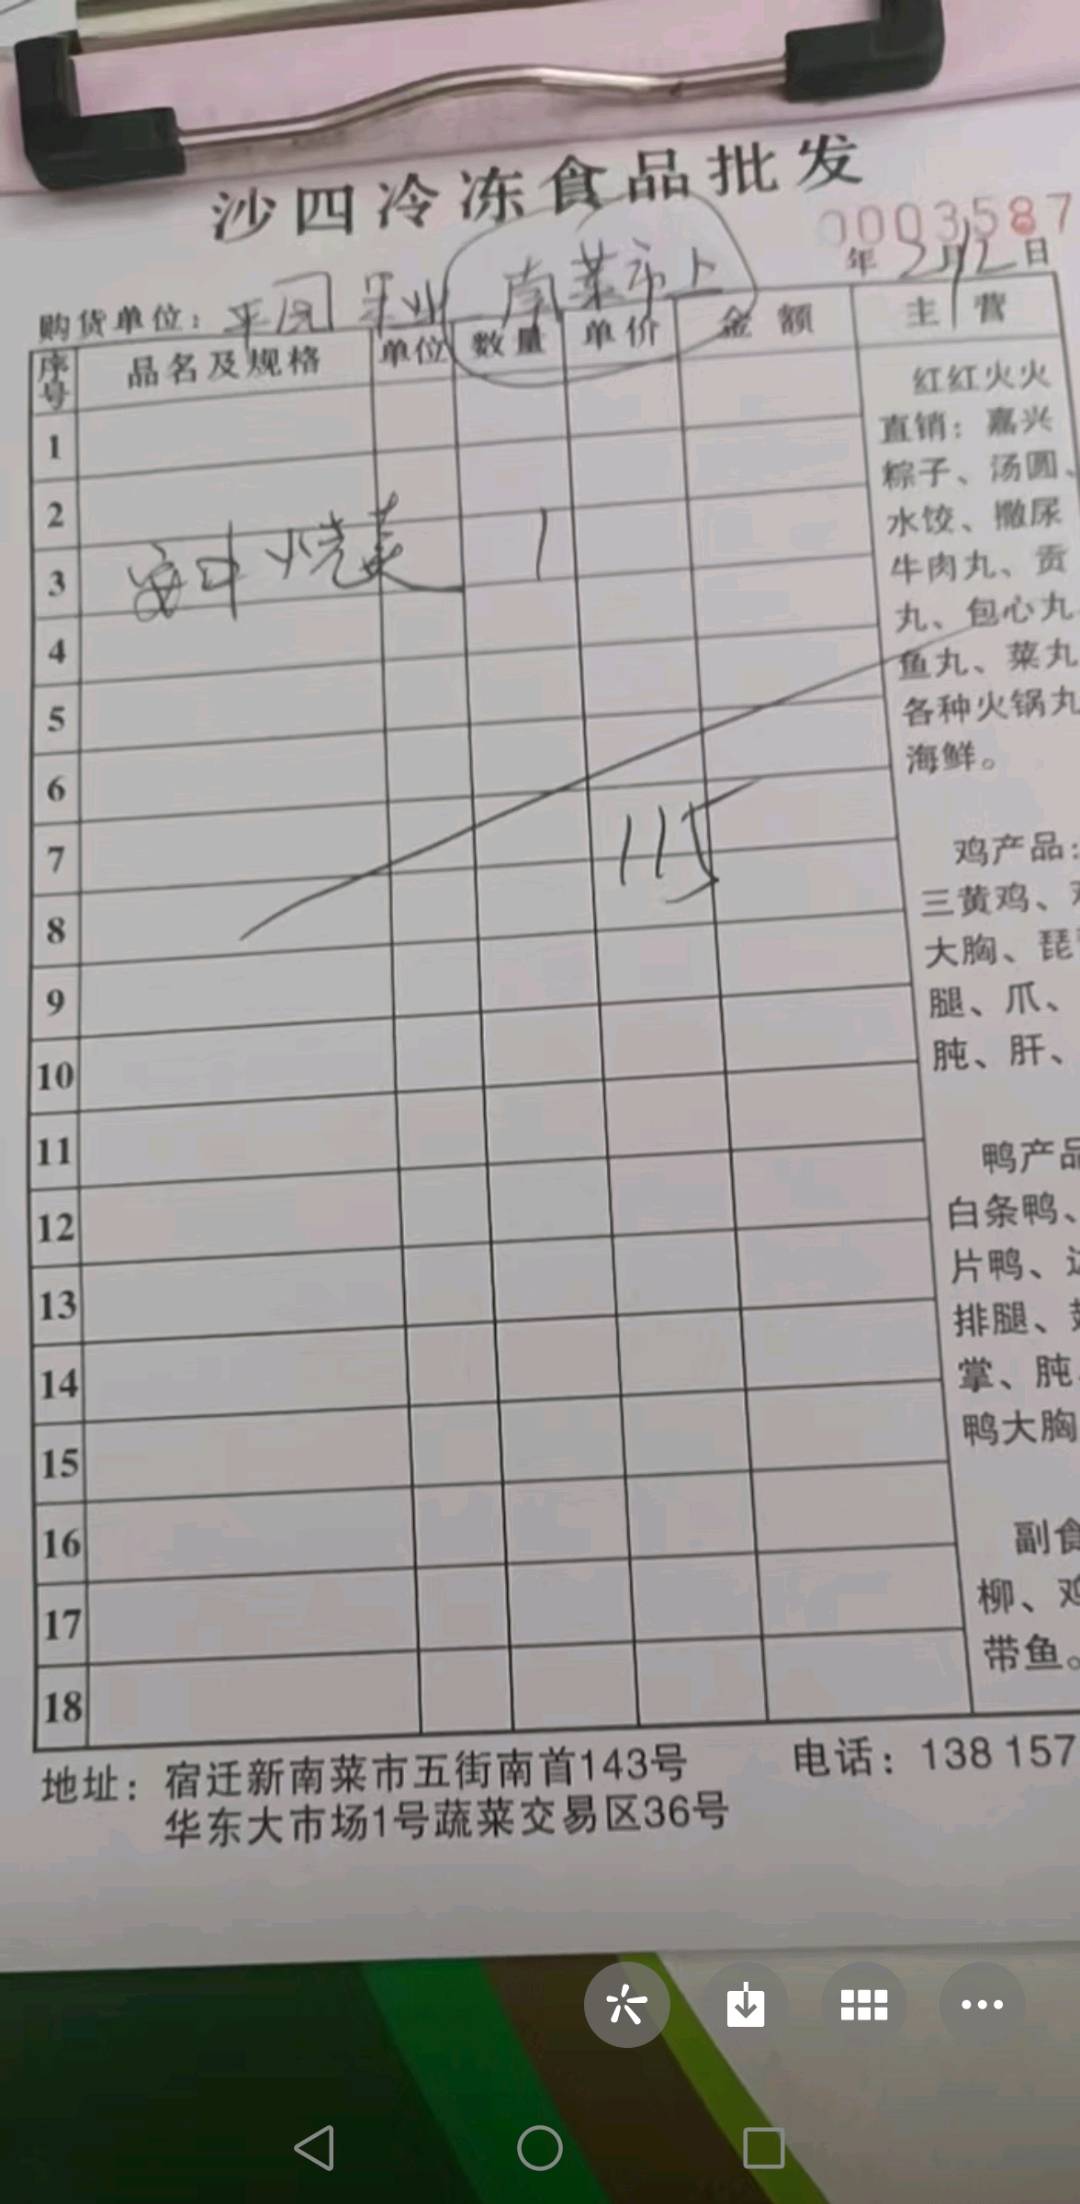 沙四冷冻食品批发
0003587
年2月12日
购货单位：平园 南菜市上
序号 品名及规格 单位 数量 单价 金额 主营
1
2
3 安井 烧卖 1
4
5
6
7 115
8
9
10
11
12
13
14
15
16
17
18
红红火火
直销：嘉兴
粽子、汤圆、
水饺、撒尿
牛肉丸、贡
丸、包心丸
鱼丸、菜丸
各种火锅丸
海鲜。
鸡产品：
三黄鸡、
大胸、琵
腿、爪、
肫、肝、
鸭产品
白条鸭、
片鸭、
排腿、
掌、肫
鸭大胸
副食
柳、鸡
带鱼。
地址：宿迁新南菜市五街南首143号 电话：138 157
华东大市场1号蔬菜交易区36号